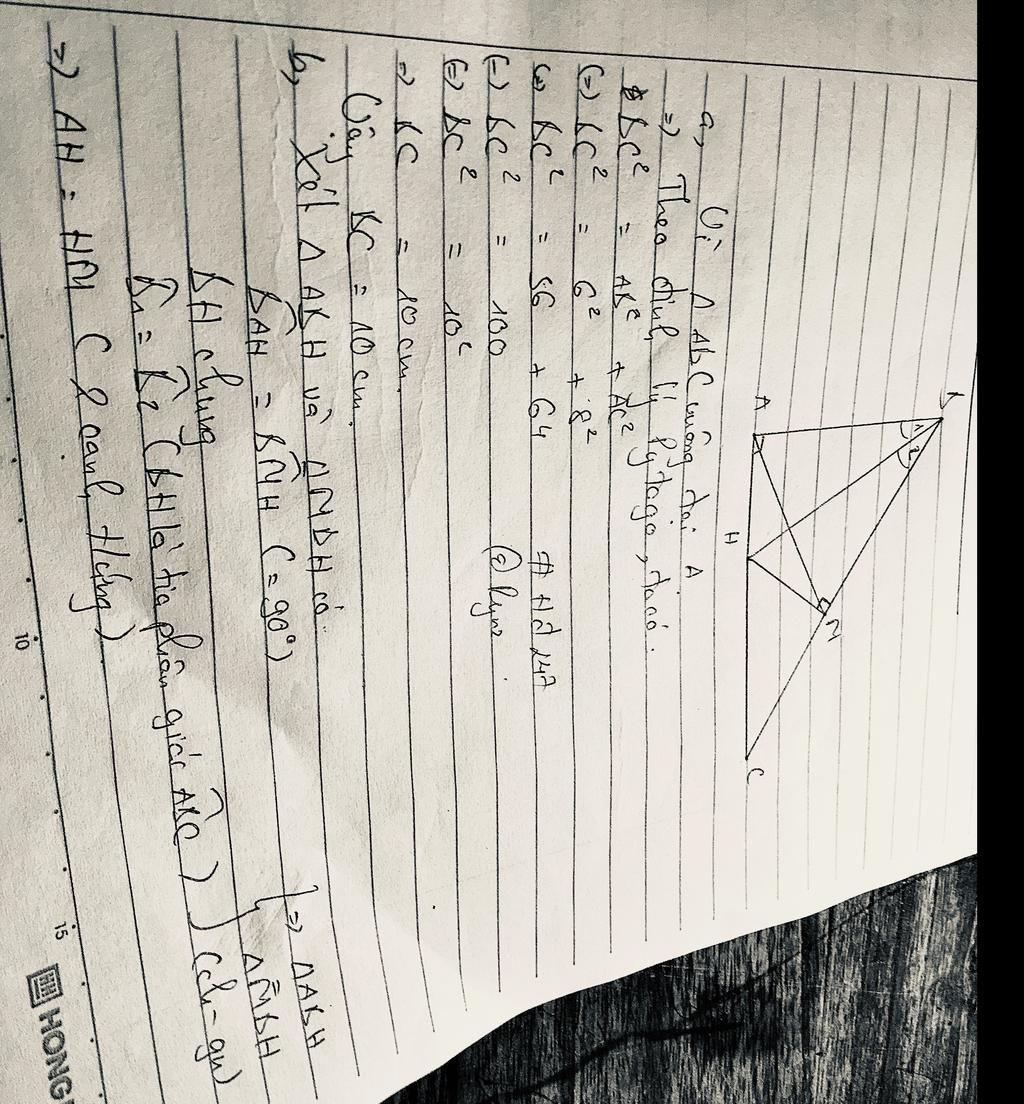 B
1 2
A
H
M
C
a, Vì Δ ABC vuông tại A
=> Theo định lý Pytago, ta có.
BC² = AB² + AC²
(=) BC² = 6² + 8²
(=) BC² = 36 + 64
(=) BC² = 100
(=) BC² = 10²
=> BC = 10 cm.
Vậy BC = 10 cm.
# Hd247
b, Xét Δ ABH và ΔMBH có
BAH = BMH (= 90°)
BH chung
B1 = B2 (BH là tia phân giác ABC)
=> ΔABH
ΔMBH
(ch - gn)
=> AH = HM ( 2 cạnh t/ứng )
10
15
HONG